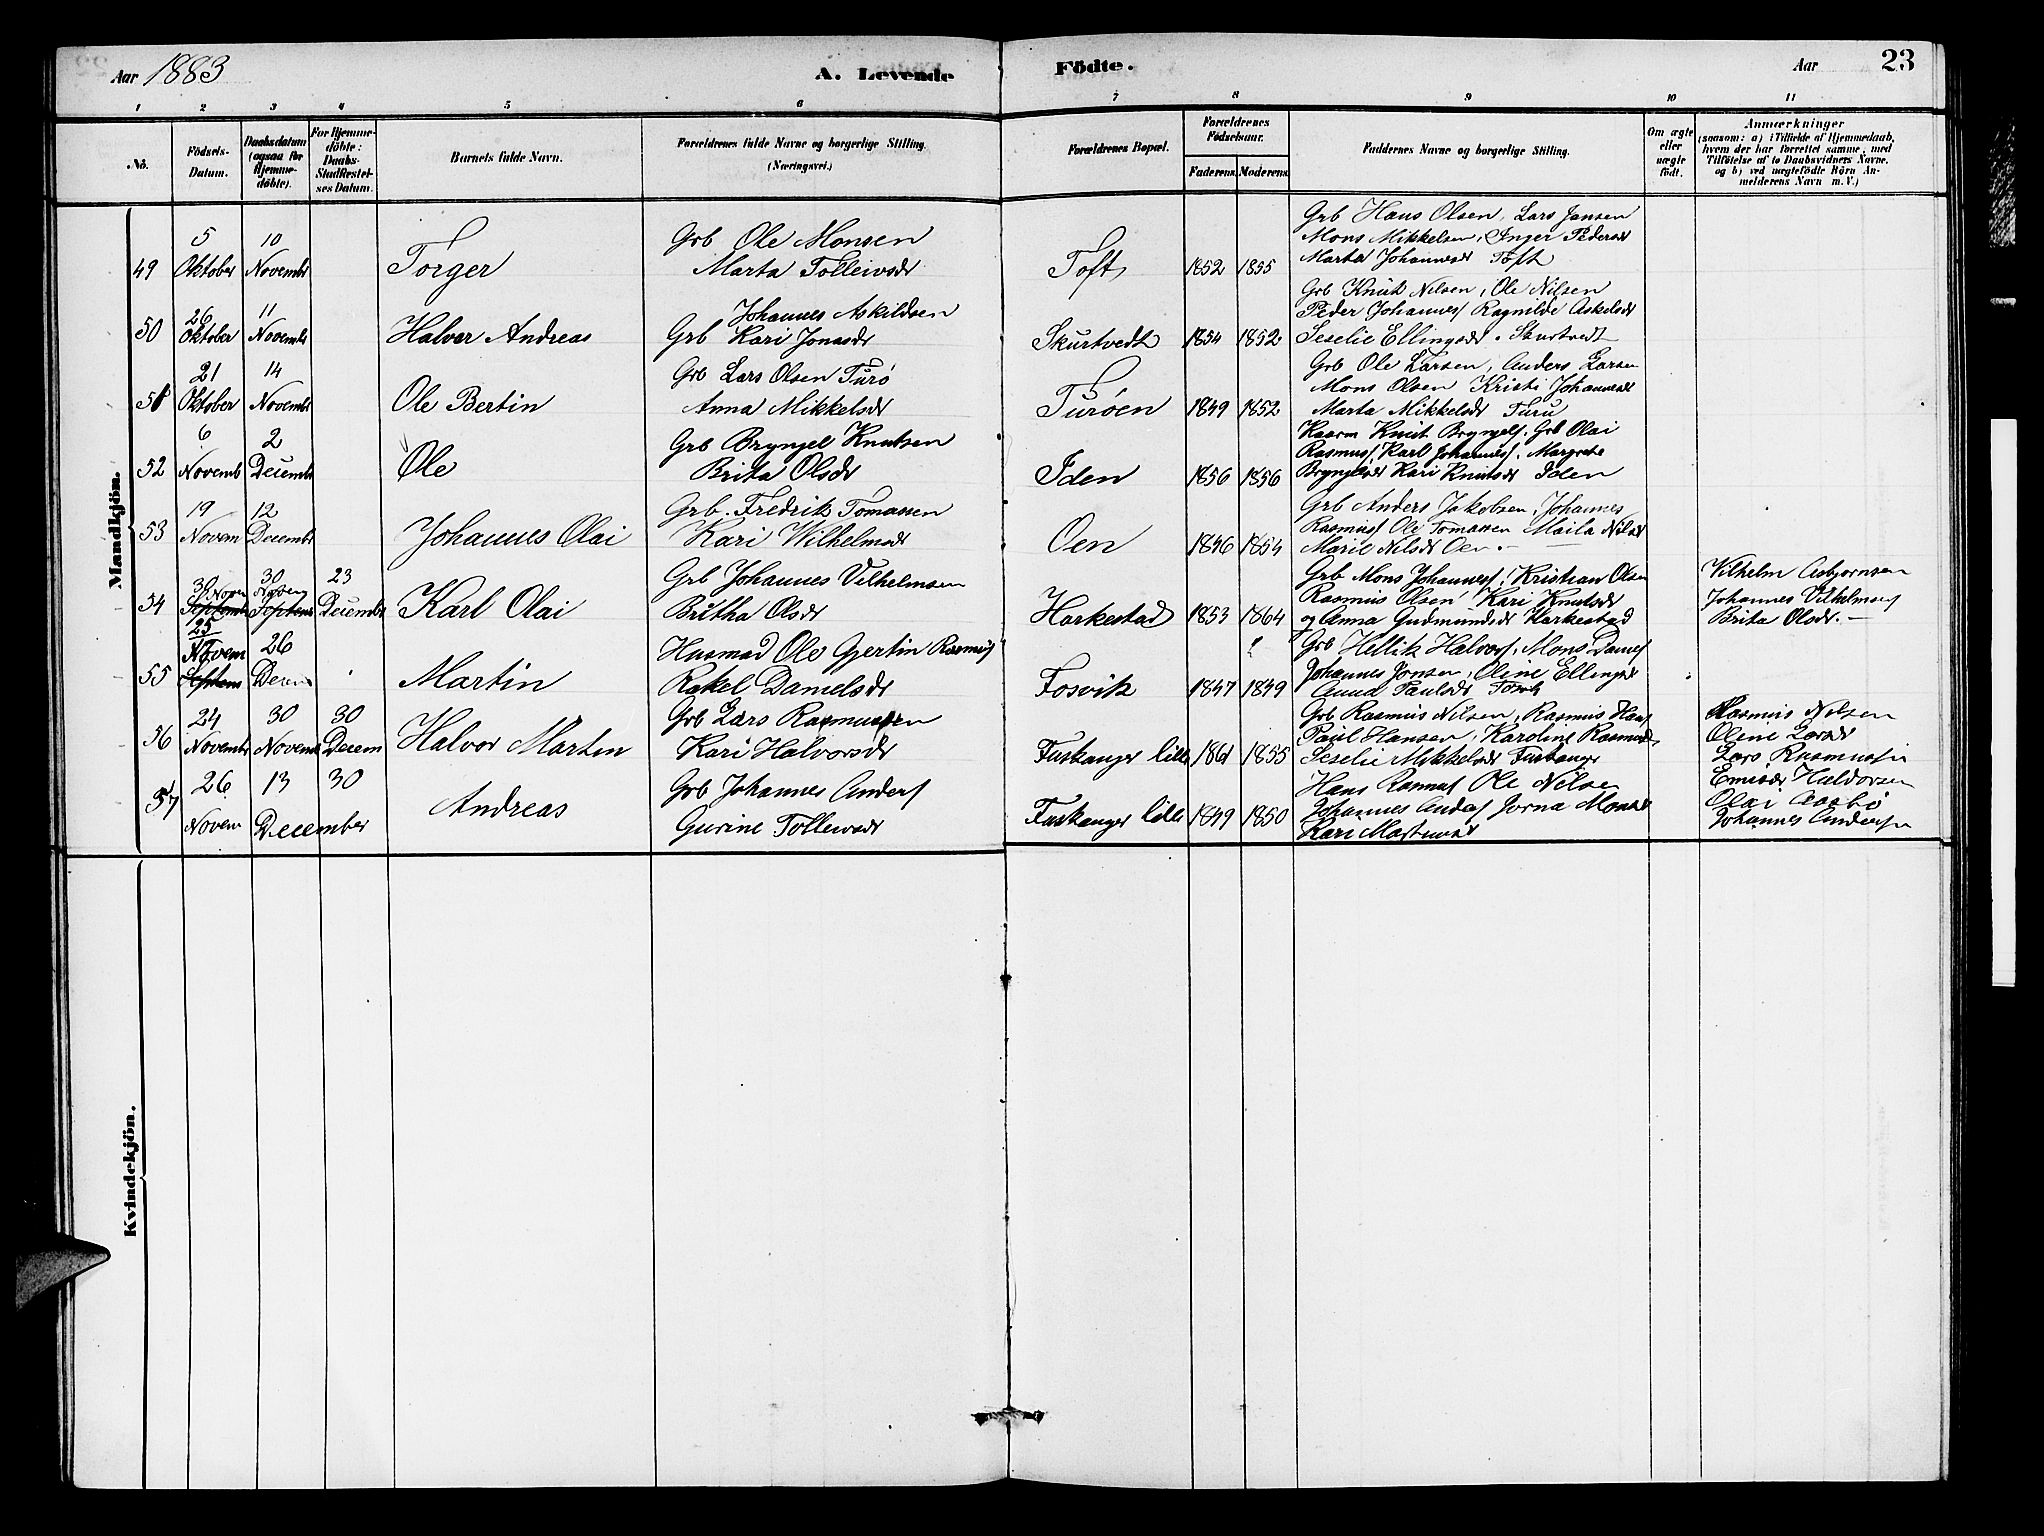 Aar 1883
A. Levende Födte.
Aar 23
1 2 3 4 5 6 7 8 9 10 11
No.
Födsels-Datum.
Daabsdatum (ogsaa for Hjemme-döbte).
For Hjemme-döbte: Daabs-Stadfæstel-ses Datum.
Barnets fulde Navn.
Forældrenes fulde Navne og borgerlige Stilling. (Næringsvei.)
Forældrenes Bopæl.
Forældrenes Födselsaar.
Faderens. Moderens.
Faddernes Navne og borgerlige Stilling.
Om ægte eller uægte födt.
Anmærkninger
(saasom: a) i Tilfælde af Hjemmedaab, hvem der har forrettet samme, med Tilföielse af to Daabsvidners Navne, og b) ved uægtefödte Börn An-melderens Navn m. V.)
Mandkjön.
49 5 Oktober 10 Novembr Torger
Grb Ole Monsen
Marta Tolleivsdr
Toft 1852 1855
Grb Hans Olsen, Lars Jansen
Mons Mikkelsen, Inger Pedersdr
Marta Johannesdr Toft
50 26 Oktober 11 Novembr Halvor Andreas
Johannes Askildsen
Grb Kari Jonasdr
Skurtvedt 1854 1852
Grb Knut Nilsen, Ole Nilsen
Peder Johannes Ragnilde Askelsdr
Seselie Ellingsdr. Skurtvedt
51 21 Oktober 14 Novembr Ole Bertin
Grb Lars Olsen Turö
Anna Mikkelsdr
Turöen 1849 1852
Grb Ole Larsen, Anders Larsen
Mons Olsen Kristi Johannesdr
Marta Mikkelsdr Turu
52 6 Novemb 2 Decembr Ole
Grb Brynjel Knutsen
Brita Olsdr
Iden 1856 1856
Knut Brynjels. Grb Olai
Rasmus, Karl Johannes, Margrete
Brynjelsdr Kari Knutsdr Iden
53 19 Novem 12 Decembr Johannes Olai
Grb. Fredrik Tomassen
Kari Wilhelmsdr
Oen 1846 1854
Grb Anders Jakobsen, Johannes
Rasmus Ole Tomassen Maila Nilsdr
Marie Nilsdr Oen. -
54 30 Novem Septembr 30 Novem Septembr 23 Decembr Karl Olai
Grb Johannes Vilhelmsen
Britha Olsdr
Harkestad 1853 1864
Grb Mons Johannes, Kristian Olsen
Rasmus Olsen Kari Knutsdr
og Anna Gudmundsdr Harkestad
Vilhelm Asbjørnsen
Johannes Vilhelmsen
Brita Olsdr. -
55 25 Novem Septem 26 Decem Martin
Husmad Ole Gjertin Rasmus
Rakel Danielsdr
Fosvik 1847 1849
Grb Hellik Halvors, Mons Danies
Johannes Jonsen, Oline Ellingsdr
Anna Paulsdr Fosvik
56 24 Novembr 30 Novem 30 Decem Halvor Martin
Grb Lars Rasmussen
Kari Halvorsdr
Turkanger lille 1861 1855
Grb Rasmus Nilsen, Rasmus Hans
Paul Hansen, Karoline Rasmusdr
Seselie Mikkelsdr Turkanger
Rasmus Nilsen
Oline Larsdr
Lars Rasmussen
57 26 Novem 13 30 December Andreas
Grb Johannes Anders
Gurine Tolleivsdr
Turkanger lille 1849 1850
Hans Rasmus Ole Nilsen
Johannes Anders Jorna Monsdr
Kari
Haldorsen
Olai
Johannes Andersen
Kvindekjön.